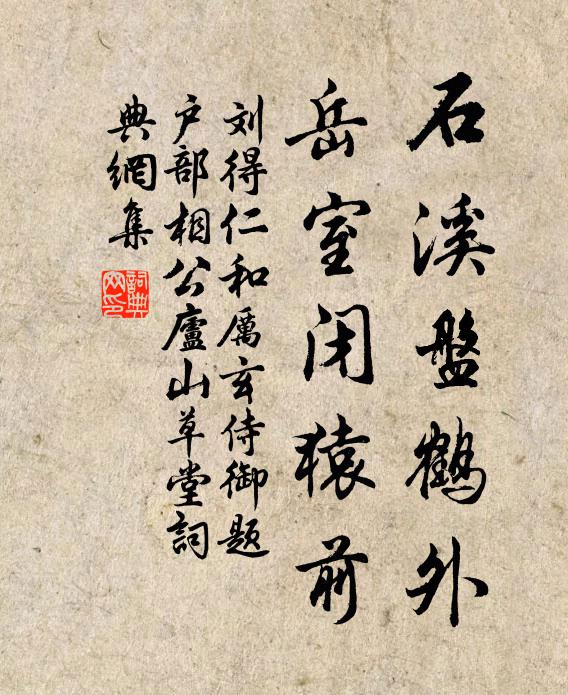 石溪盤鶴外
岳室闭猿前
刘得仁和厲玄侍御题
户部相公廬山草堂詞
典網集
詞典网印